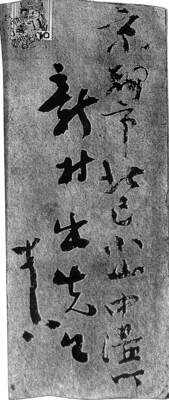 京都市北区小山中溝町
新村出先生